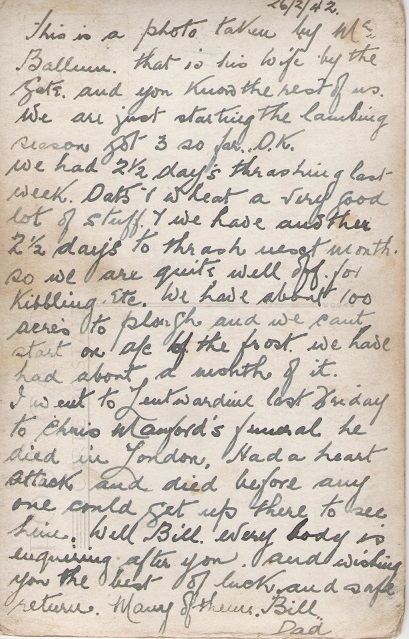 26/2/42.
This is a photo taken by Mr.
that is his wife by the
gate. and you know the rest of us.
We are just starting the lambing
season got 3 so far. O.K.
we had 2½ day's thrashing last
week. Oats & wheat a very good
lot of stuff & we have another
2½ days to thrash next month.
so we are quite well off for
Kibbling. Etc. We have about 100
acres to plough and we cant
start on a/c of the frost. we have
had about a month of it.
I went to Leintwardine last Friday
to Chris funeral he
died in London. Had a heart
attack and died before any
one could get up there to see
him. Well Bill. every body is
enquiring after you. and wishing
you the best of luck. and safe
return. Many of them. Bill
Dad